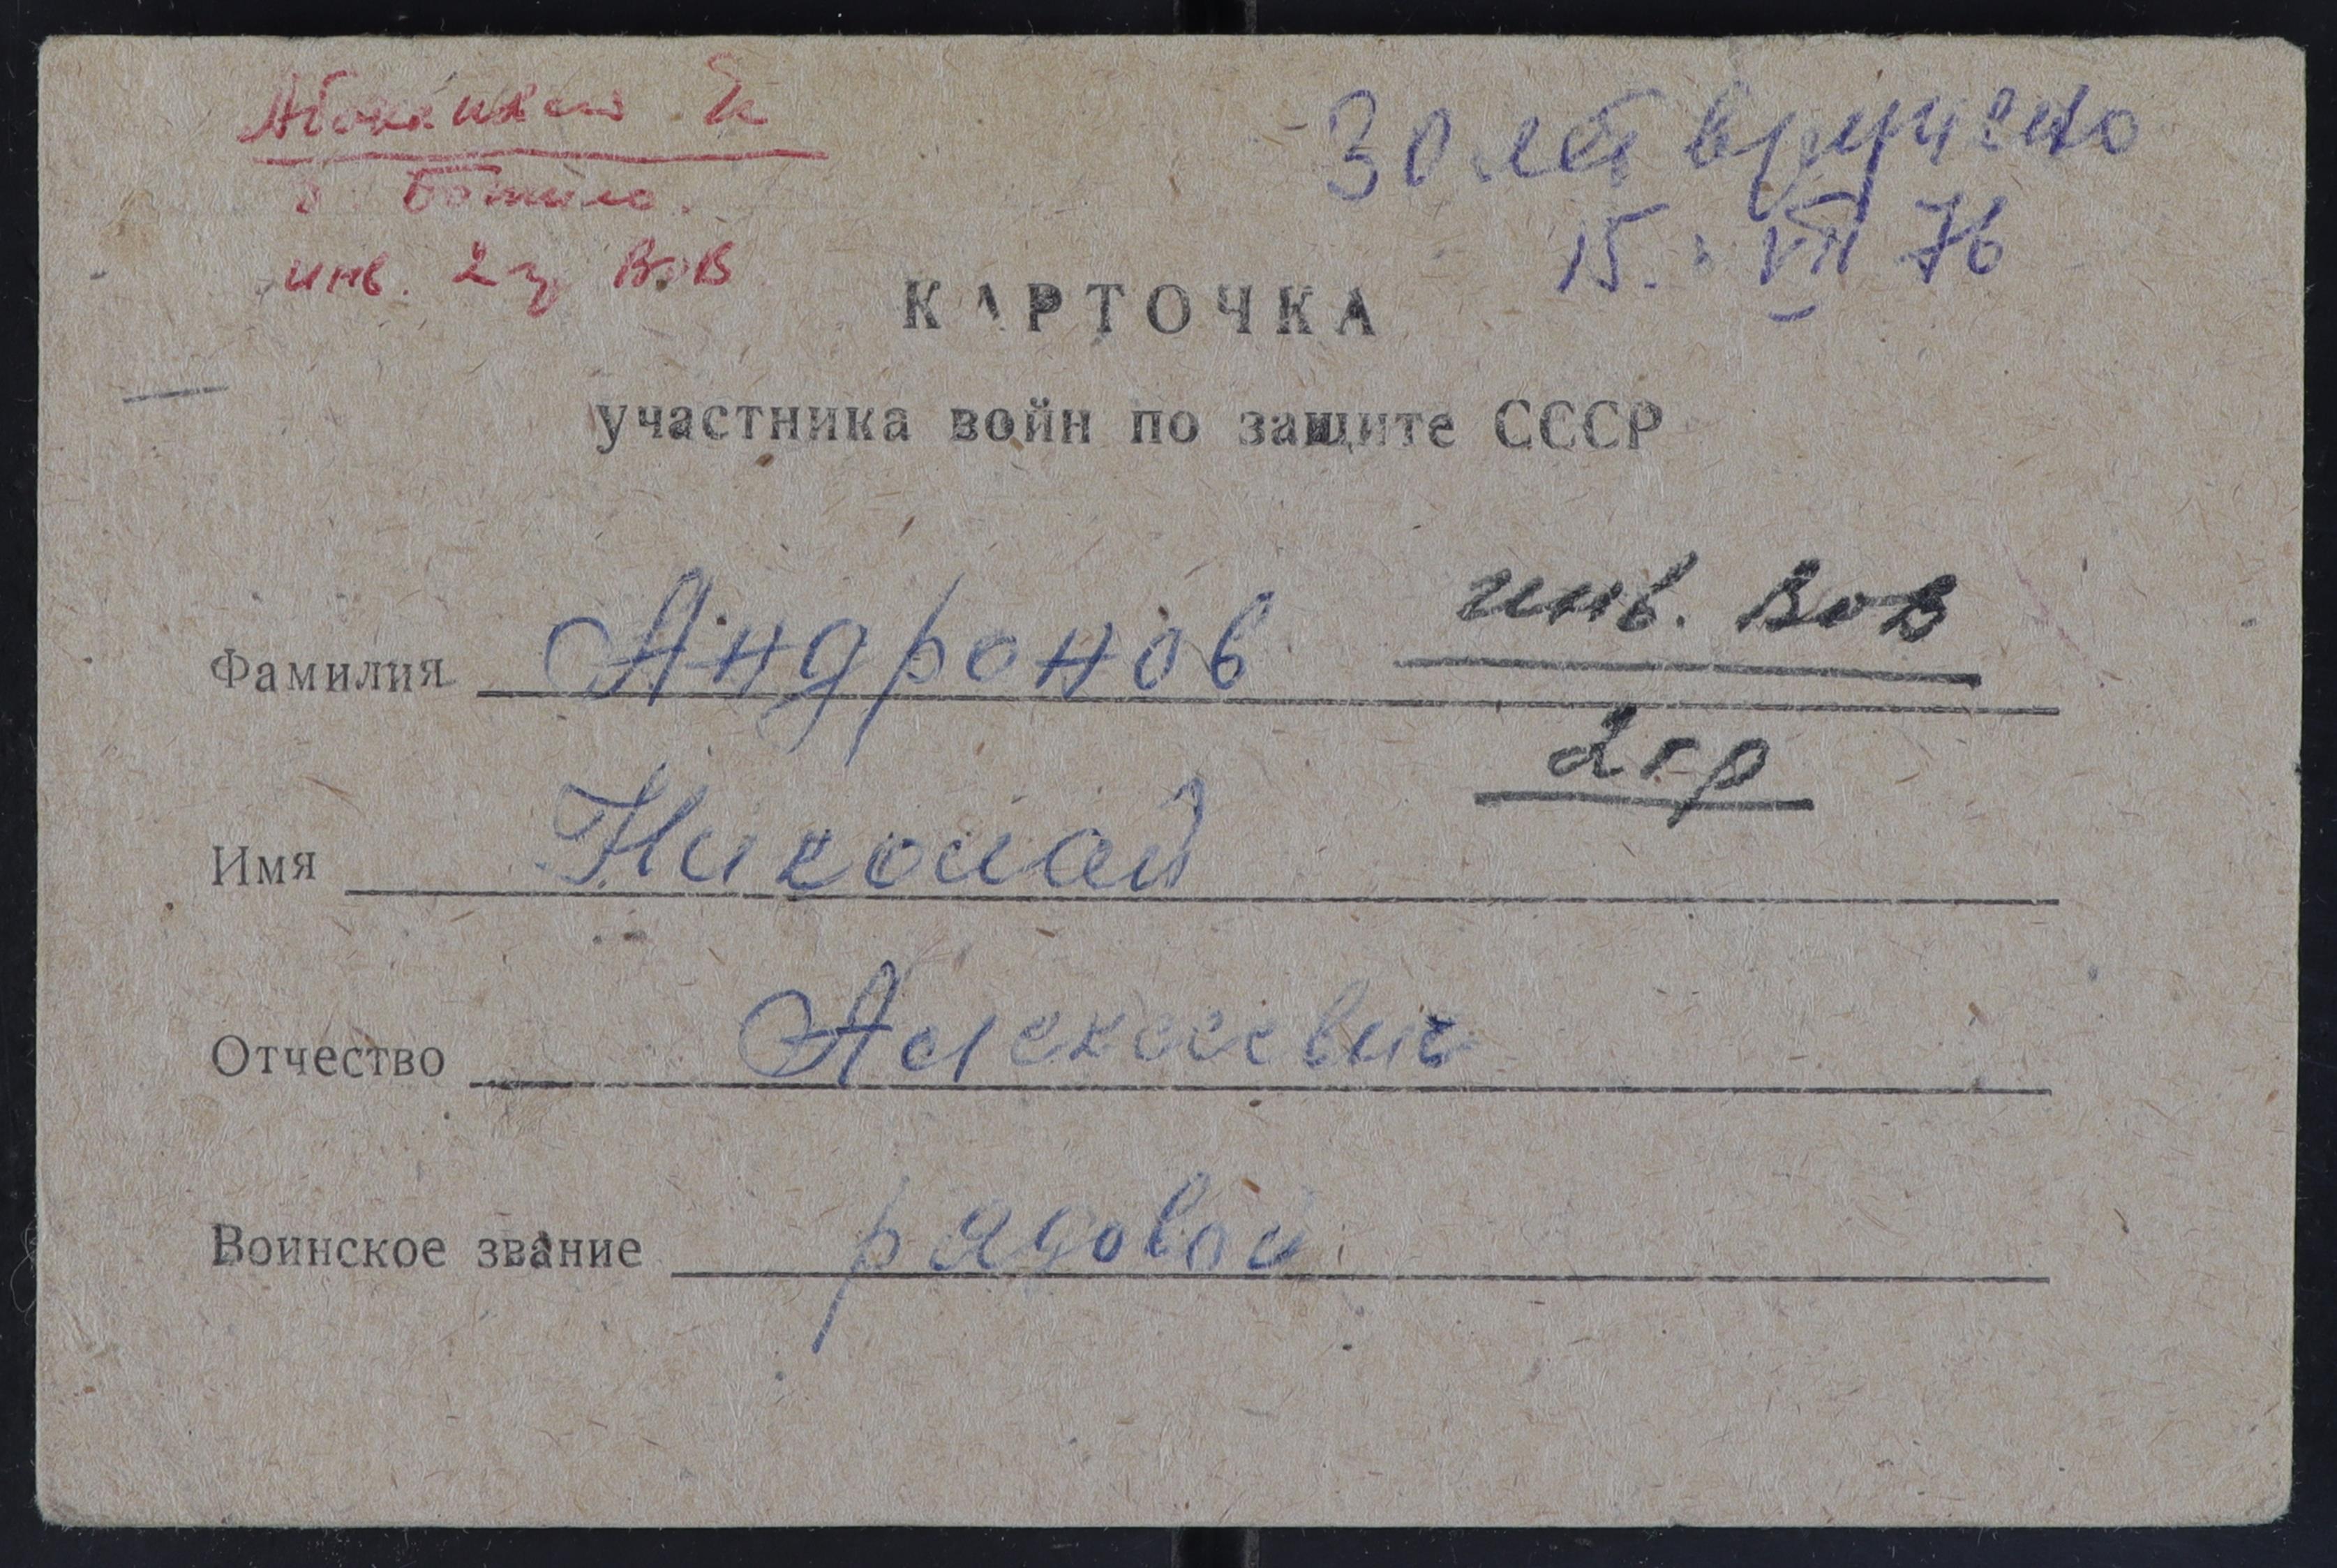 30 лет вручено
15. VII 76
инв. 2 г ВОВ
КАРТОЧКА
участника войн по защите СССР
инв. ВОВ
Фамилия Андронов
2 гр
Имя Николай
Отчество Алексеевич
Воинское звание рядовой